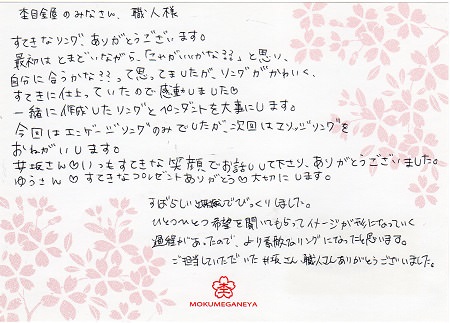 杢目金屋のみなさん、職人様
すてきなリング、ありがとうございます。
最初はとまどいながら、「これがいいかな??」と思い、
自分に合うかな??って思ってましたが、リングがかわいく、
すてきに仕上っていたので感動しました♡
一緒に作成したリングとペンダントを大事にします。
今回はエンゲージリングのみでしたが、次回はマリッジリングを
おねがいします。
いつもすてきな笑顔でお話しして下さり、ありがとうございました。
ゆうさん♡すてきなプレゼントありがとう♡大切にします。
すばらしい出来でびっくりしました。
ひとつひとつ希望を聞いてもらってイメージが形になっていく
過程があったので、より素敵なリングになったと思います。
ご担当していただいた井坂さん、職人さんありがとうございました。
杢
MOKUMEGANEYA